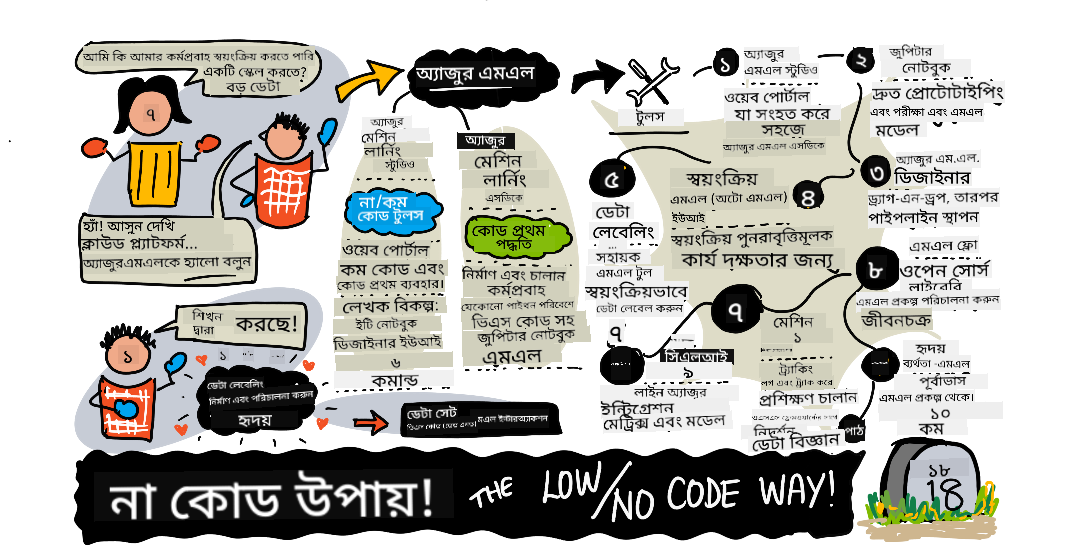 আমি কি আমার কর্মপ্রবাহ স্বয়ংক্রিয় করতে পারি
একটি স্কেল করতে?
বড় ডেটা
৭
হ্যাঁ! আসুন দেখি
ক্লাউড প্ল্যাটফর্ম...
অ্যাজুরএমএলকে হ্যালো বলুন
শিখন
দ্বারা
করছে!
১
১
ডেটা লেবেলিং
নির্মাণ এবং পরিচালনা করুন
হৃদয়
অ্যাজুর এমএল
অ্যাজুর
মেশিন
লার্নিং
স্টুডিও
না/কম
কোড টুলস
ওয়েব পোর্টাল
কম কোড এবং
কোড প্রথম ব্যবহার।
লেখক বিকল্প:
ইটি নোটবুক
ডিজাইনার ইউআই
৬
কমান্ড
অ্যাজুর
মেশিন
লার্নিং
এসডিকে
কোড প্রথম
পদ্ধতি
নির্মাণ এবং চালান
কর্মপ্রবাহ
যেকোনো পাইথন পরিবেশে
ভিএস কোড সহ
জুপিটার নোটবুক
এমএল
ডেটা সেট
টুলস
১
অ্যাজুর
এমএল স্টুডিও
ওয়েব পোর্টাল
যা সংহত করে
সহজে
অ্যাজুর এমএল এসডিকে
২
জুপিটার
নোটবুক
দ্রুত প্রোটোটাইপিং
এবং পরীক্ষা এবং এমএল
মডেল
৩
অ্যাজুর এম.এল.
ডিজাইনার
ড্র্যাগ-এন-ড্রপ, তারপর
পাইপলাইন স্থাপন
স্বয়ংক্রিয়
এমএল (অটো এমএল)
৪
ইউআই
স্বয়ংক্রিয় পুনরাবৃত্তিমূলক
কার্য দক্ষতার জন্য
৫
ডেটা
লেবেলিং
...
সহায়ক
এমএল টুল
স্বয়ংক্রিয়ভাবে
ডেটা লেবেল করুন
৭
সিএলআই
৯
লাইন অ্যাজুর
ইন্টিগ্রেশন
মেট্রিক্স এবং মডেল
৭
মেশিন
১
ট্র্যাকিং
লগ এবং ট্র্যাক করে
প্রশিক্ষণ চালান
নিদর্শন
পাঠ
ডেটা বিজ্ঞান
৮
এমএল ফ্লো
ওপেন সোর্স
লাইব্রেরি
এমএল প্রকল্প পরিচালনা করুন
জীবনচক্র
হৃদয়
ব্যর্থতা -এমএল
পূর্বাভাস
এমএল প্রকল্প থেকে।
১০
কম
না কোড উপায়!
THE LOW/NO CODE WAY!
১৮
18